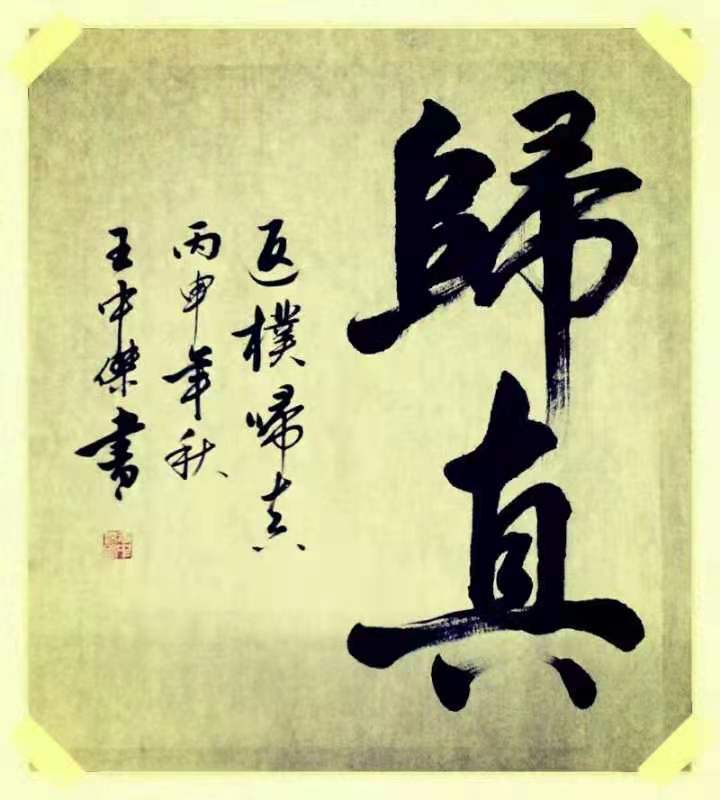 歸真
返樸歸真
丙申年秋
王中傑書